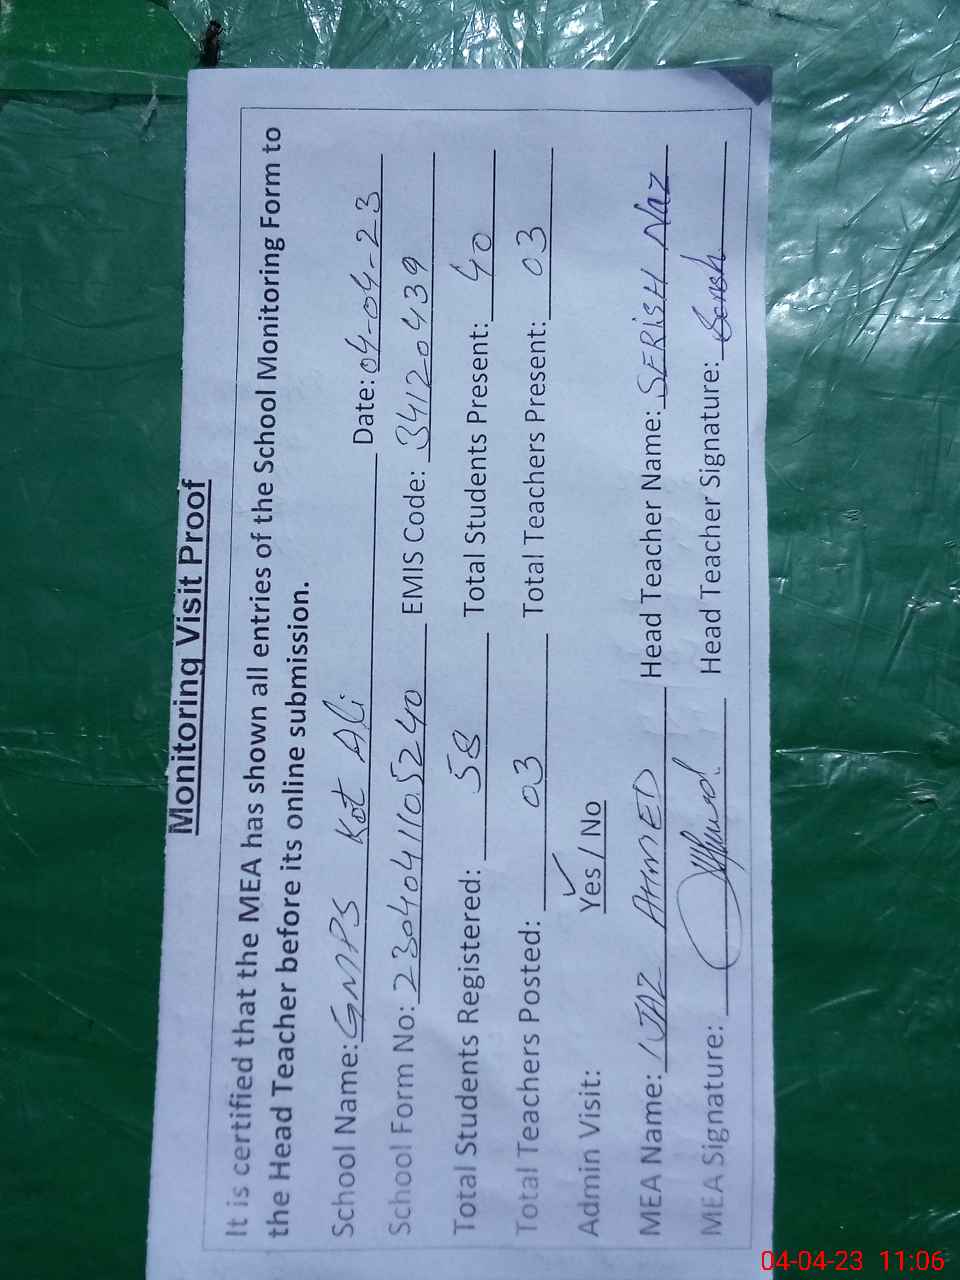 Monitoring Visit Proof
It is certified that the MEA has shown all entries of the School Monitoring Form to
the Head Teacher before its online submission.
School Name: GMPS Kot Ali Date: 04-04-23
School Form No: 2304041105240 EMIS Code: 34120439
Total Students Registered: 58 Total Students Present: 40
Total Teachers Posted: 03 Total Teachers Present: 03
Admin Visit: Yes / No
MEA Name: IJAZ AHMED Head Teacher Name: SERISH Naz
MEA Signature: Ahmed Head Teacher Signature: Serish
04-04-23 11:06